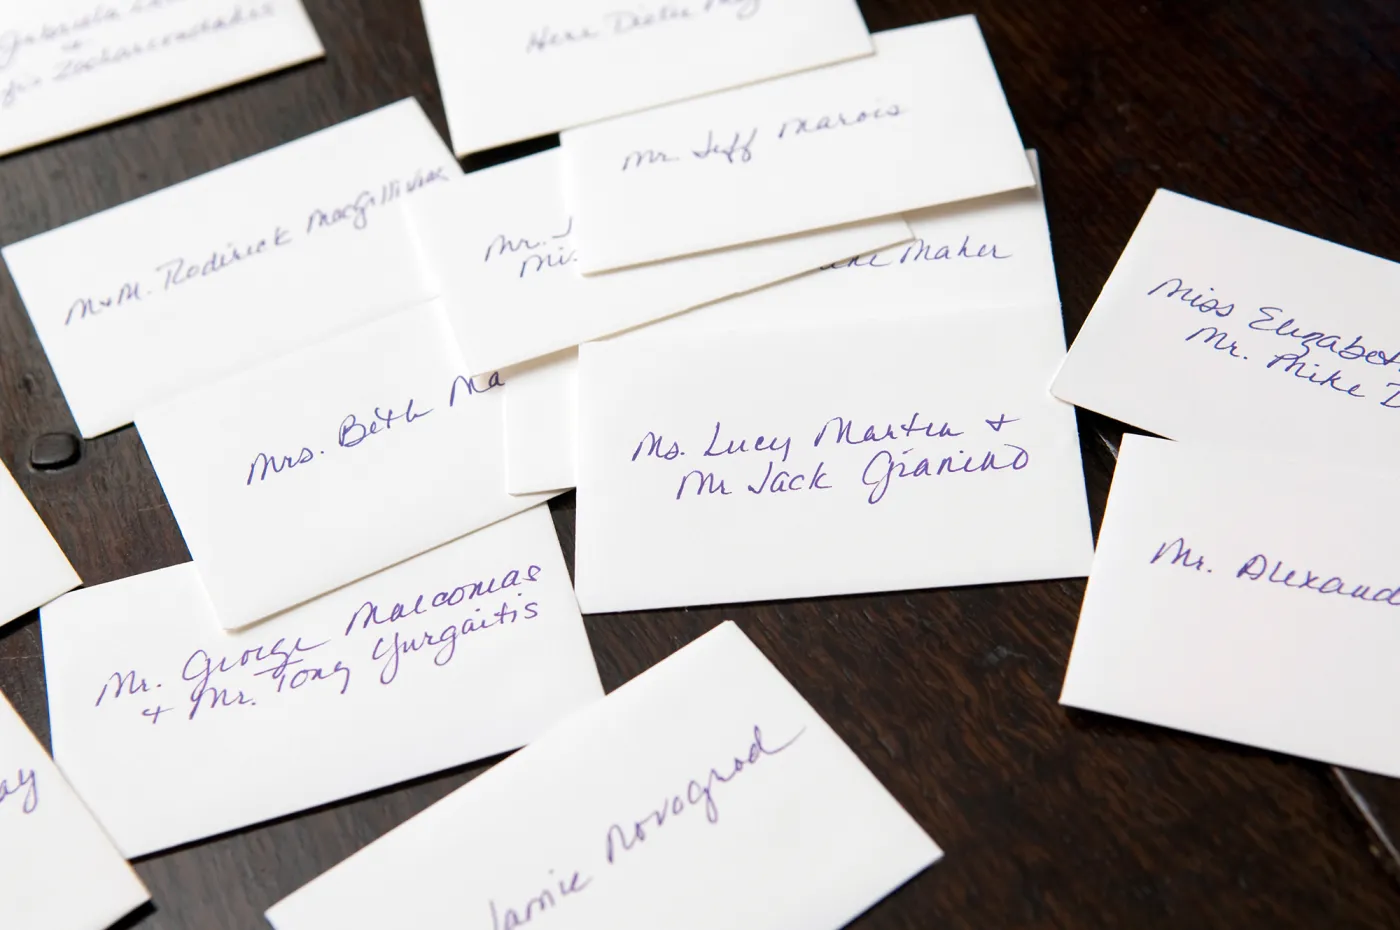 Gabriela
+
Herr Dieter
Mr. Jeff Marois
M+M. Roderick MacGillivray
Mr. J
Mi.
Maher
Miss Elizabet
Mr. Mike D
Mrs. Beth Ma
Ms. Lucy Martin +
Mr Jack Gianino
Mr. Alexand
Mr. George Malcomas
+ Mr. Tony Yurgaitis
ay
Jamie Novograd